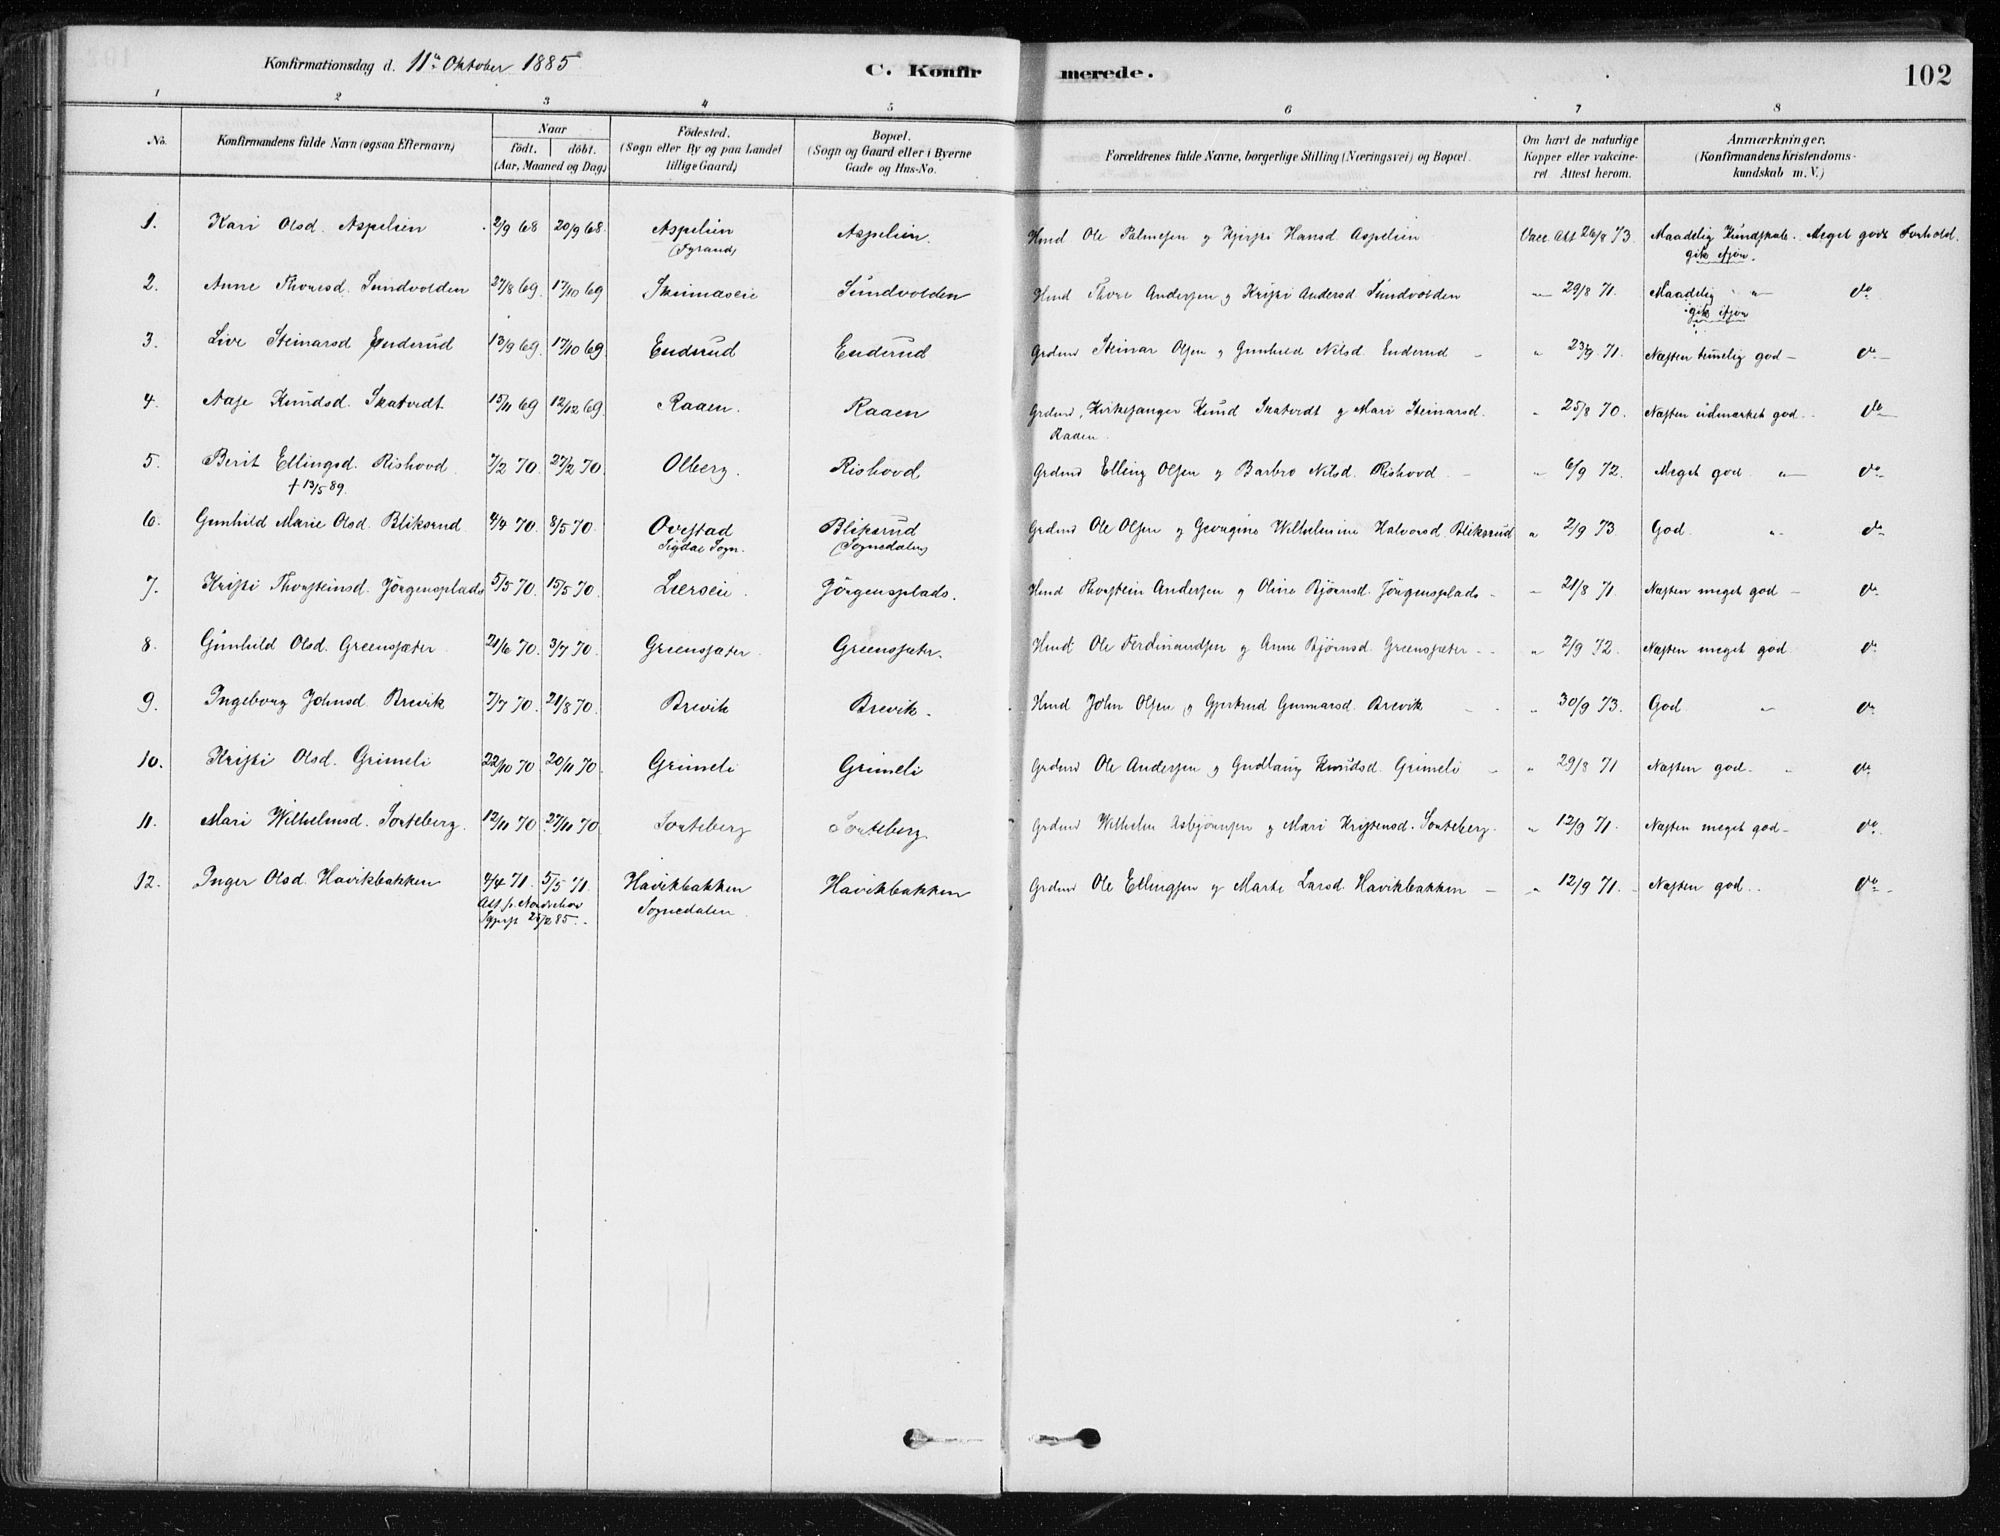 Konfirmationsdag d. 11te Oktober 1885
C. Konfirmerede.
102
1 2 3 4 5 6 7 8
No. Konfirmandens fulde Navn (ogsaa Efternavn) Naar født. døbt. (Aar, Maaned og Dag) Fødested. (Sogn eller By og paa Landet tillige Gaard) Bopæl. (Sogn og Gaard eller i Byerne Gade og Hus-No. Forældrenes fulde Navne, borgerlige Stilling (Næringsvei) og Bopæl. Om havt de naturlige Kopper eller vakcineret. Attest herom. Anmærkninger. (Konfirmandens Kristendomskundskab m. V.)
1. Kari Olsd. Aspelien 2/9 68 20/9 68. Aspelien Aspelien. Hmd Ole Palmesen og Kjersti Hansd. Aspelien Vacc. Att 26/8 73. Maadelig Kundskab. Meget godt Forhold.
gik igjen.
2. Anne Thoresd. Sundvolden 27/8 69. 17/10 69 Sundvolden Hmd Thore Andersen og Kristi Andersd. Sundvolden " 29/8 71. Maadelig " do
gik igjen
3. Live Steinarsd Enderud 13/9 69. 17/10 69 Enderud Enderud Grdmd Steinar Olsen og Gunhild Nilsd. Enderud " 23/9 71. Næsten temelig god do
4. Aase Knudsd. Skatvedt 15/11 69 12/12 69. Raaen. Raaen Grdmd, Kirkesanger Knud Skatvedt og Mari Steinarsd. " 25/8 70. Næsten udmærket god. do
Raaen.
5. Berit Ellingsd. Rishovd 7/2 70. 27/2 70. Olberg. Rishovd Grdmd Elling Olsen og Barbro Nilsd. Rishovd " 6/9 72. Meget god " do
+ 13/5 89.
6. Gunhild Marie Olsd. Bliksrud 4/4 70. 8/5 70. Ovestad Bliksrud Grdmd Ole Olsen og Georgine Wilhelmine Halvorsd. Bliksrud " 2/9 73 God " do
Sigdal Sogn. (Sognedalen)
7. Kristi Thorsteinsd. Jörgensplads 5/5 70. 15/5 70. Leerseie. Jörgensplads. Hmd Thorstein Andersen og Oline Bjørnsd. Jörgensplads " 21/8 71 Næsten meget god do
8. Gunhild Olsd. Greensæter 21/6 70. 3/7 70. Greensæter. Greensæter. Hmd Ole Ferdinandsen og Anne Bjørnsd. Greensæter " 2/9 72. Næsten meget god do
9. Ingeborg Johnsd. Brevik 7/7 70. 21/8 70. Brevik Brevik. Hmd John Olsen og Gjertrud Gunnarsd. Brevik " 30/9 73. God " do
10. Kristi Olsd. Grimeli 22/10 70 20/11 70. Grimeli Grimeli Grdmd Ole Andersen og Gudlaug Knudsd. Grimeli " 29/8 71 Næsten god do
11. Mari Wilhelmsd. Sorteberg. 12/11 70 27/11 70 Sorteberg Sorteberg Grdmd Wilhelm Asbjørnsen og Mari Kristensd. Sorteberg. " 12/9 71. Næsten meget god do
12. Inger Olsd. Havikbakken 4/4 71. 5/5 71. Havikbakken Havikbakken Grdmd Ole Ellingsen og Marte Larsd. Havikbakken " 12/9 71. Næsten god do
Att. fr. Sognedalen
85.